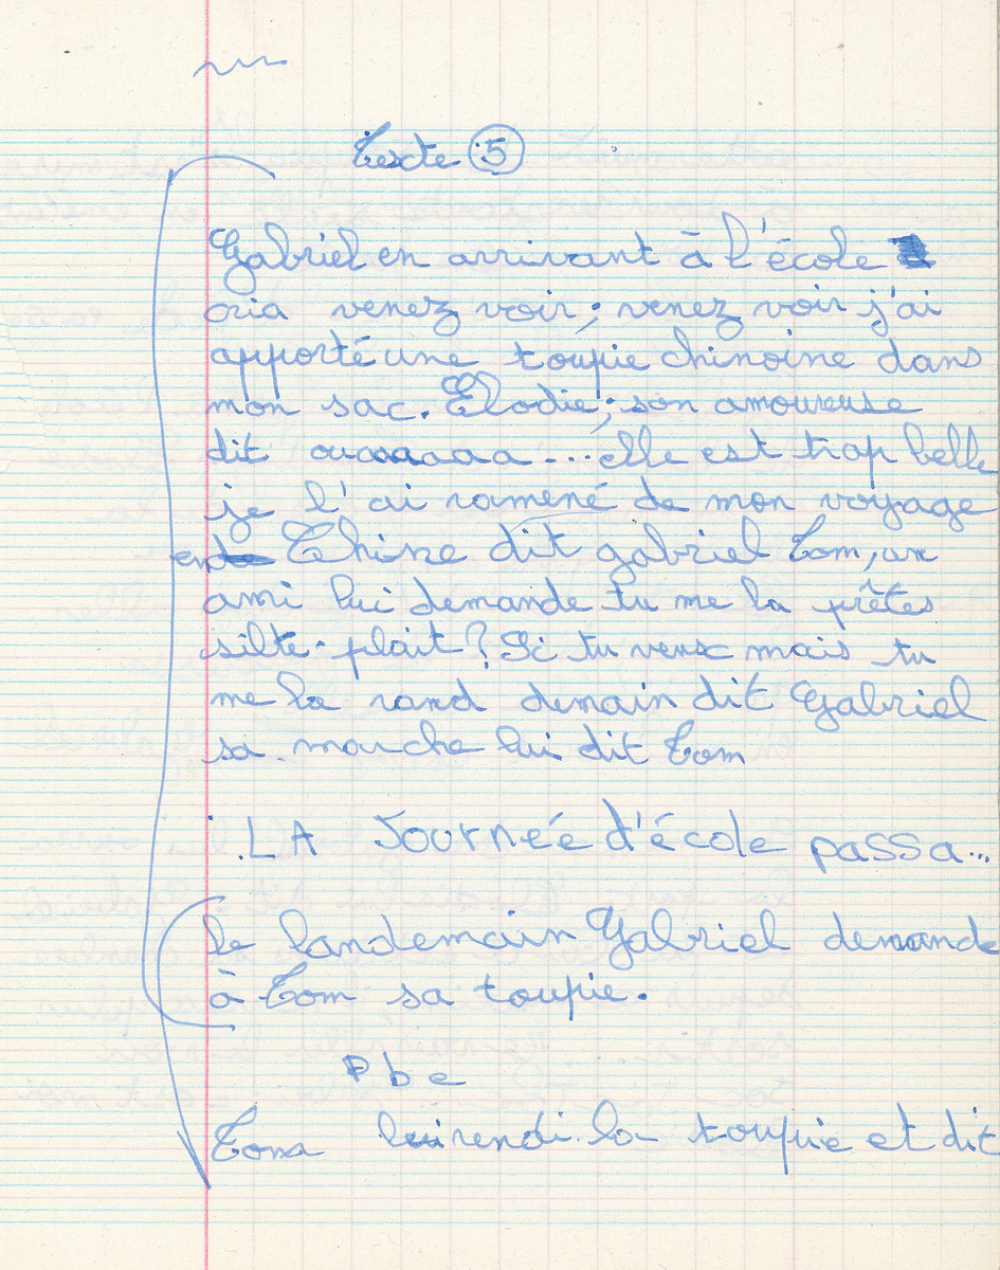 Texte 5
Gabriel en arrivant à l'école
cria venez voir ; venez voir j'ai
apporté une toupie chinoine dans
mon sac. Élodie ; son amoureuse
dit ouaaaaaa ... elle est trop belle
je l'ai ramené de mon voyage
en Chine dit gabriel Tom, un
ami lui demande tu me la prêtes
silte-plait ? Si tu veux mais tu
me la rand demain dit Gabriel
sa marche lui dit Tom
. LA Journée d'école passa...
le landemain Gabriel demande
à Tom sa toupie.
Pbe
Tom lui rendi la toupie et dit